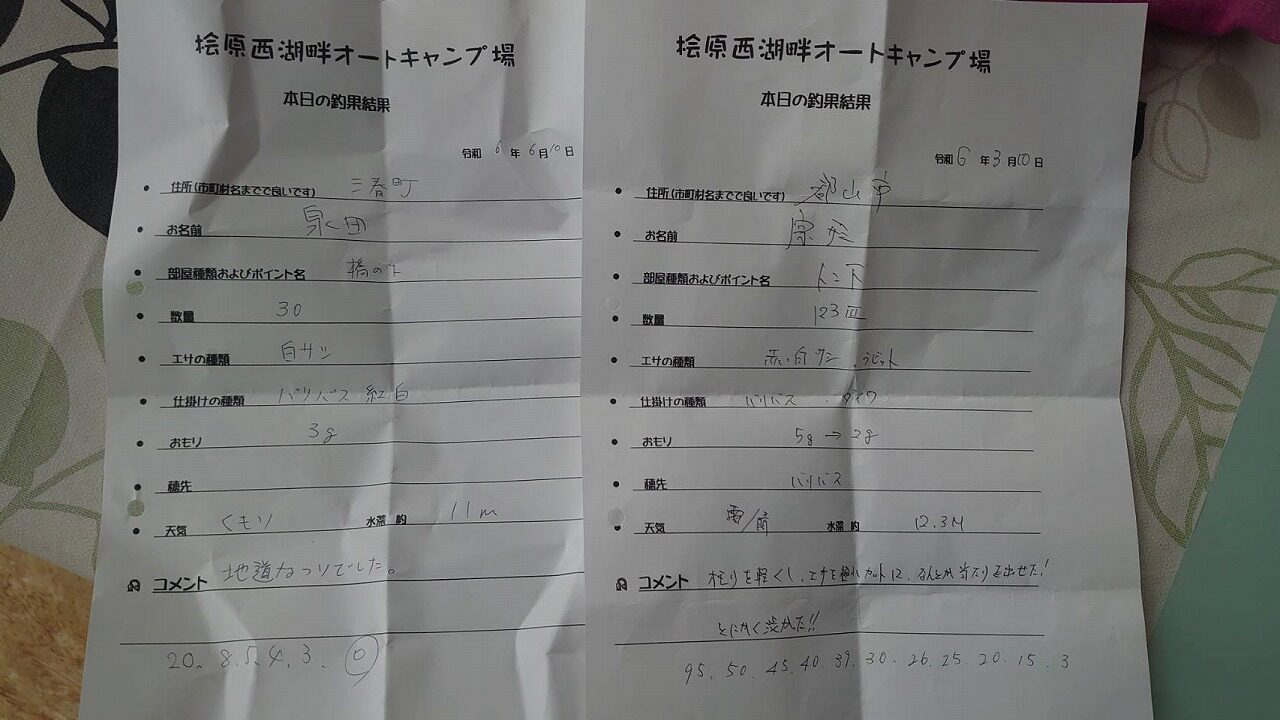 桧原西湖畔オートキャンプ場
本日の釣果結果
令和 6 年 6月10日
住所(市町村名までで良いです) 三春町
お名前
部屋種類およびポイント名 橋の下
数量 30
エサの種類 白サシ
仕掛けの種類 バリバス 紅白
おモリ 3g
穂先
天気 くもり 水深 約 11m
コメント 地道なつりでした。
20. 8. 5. 4. 3. 0
桧原西湖畔オートキャンプ場
本日の釣果結果
令和 6 年 3月10日
住所(市町村名までで良いです) 郡山市
お名前
部屋種類およびポイント名
数量 123匹
エサの種類 赤・白サシ ラビット
仕掛けの種類 バリバス ・ダイワ
おモリ 5g→2g
穂先 バリバス
天気 水深 約 12.3M
コメント オモリを軽くし、エサを カットに、なんとか当たりを出せた!
とにかく渋かった!!
95. 50. 45. 40. 39. 30. 26. 25. 20. 15. 3